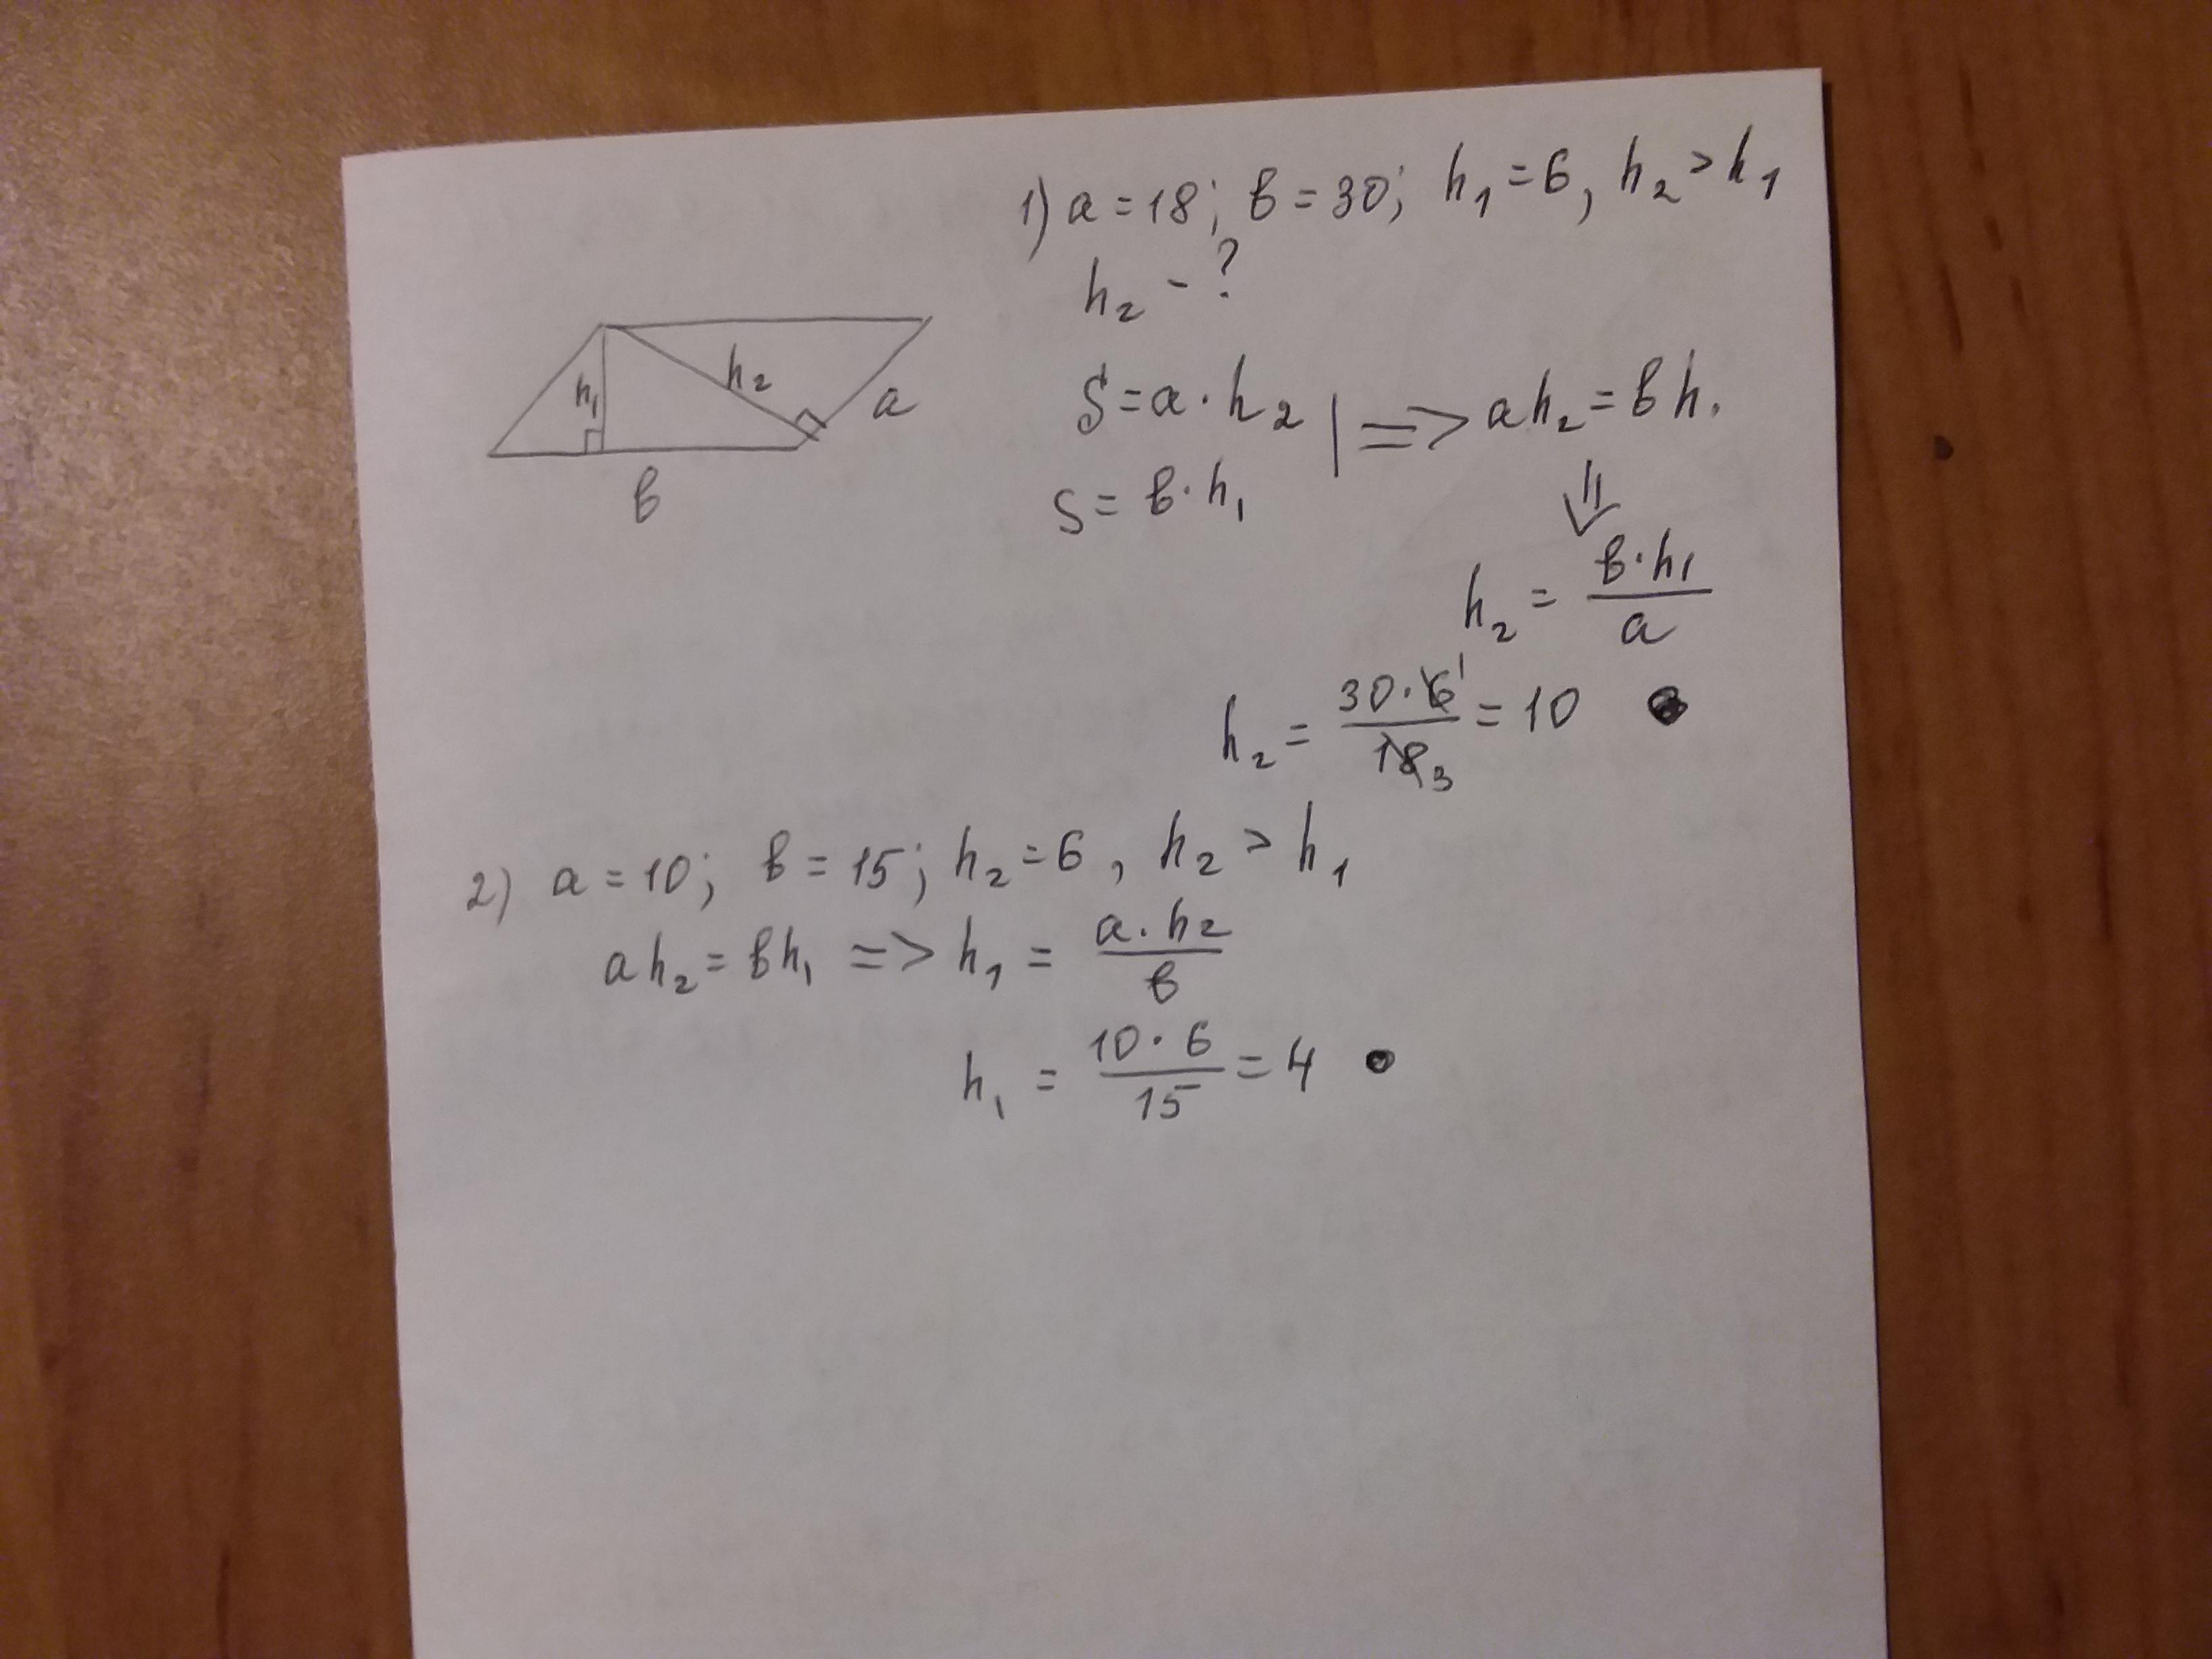 1) a = 18; в = 30; h₁ = 6, h₂ > h₁
h₂ - ?
h₁
h₂
a
в
S = a · h₂ | => ah₂ = вh₁
S = в · h₁
⇓
h₂ = в·h₁ / a
h₂ = 30·6 1 / 18 3 = 10
2) a = 10; в = 15; h₂ = 6, h₂ > h₁
ah₂ = вh₁ => h₁ = a·h₂ / в
h₁ = 10·6 / 15 = 4